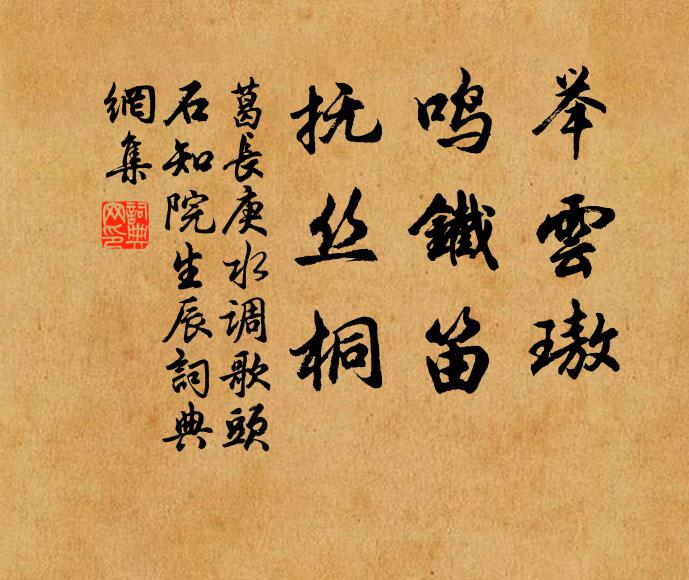 举雲璈
鸣鐵笛
抚丝桐
葛长庚水调歌頭
石知院生辰詞典
網集
詞典
网印